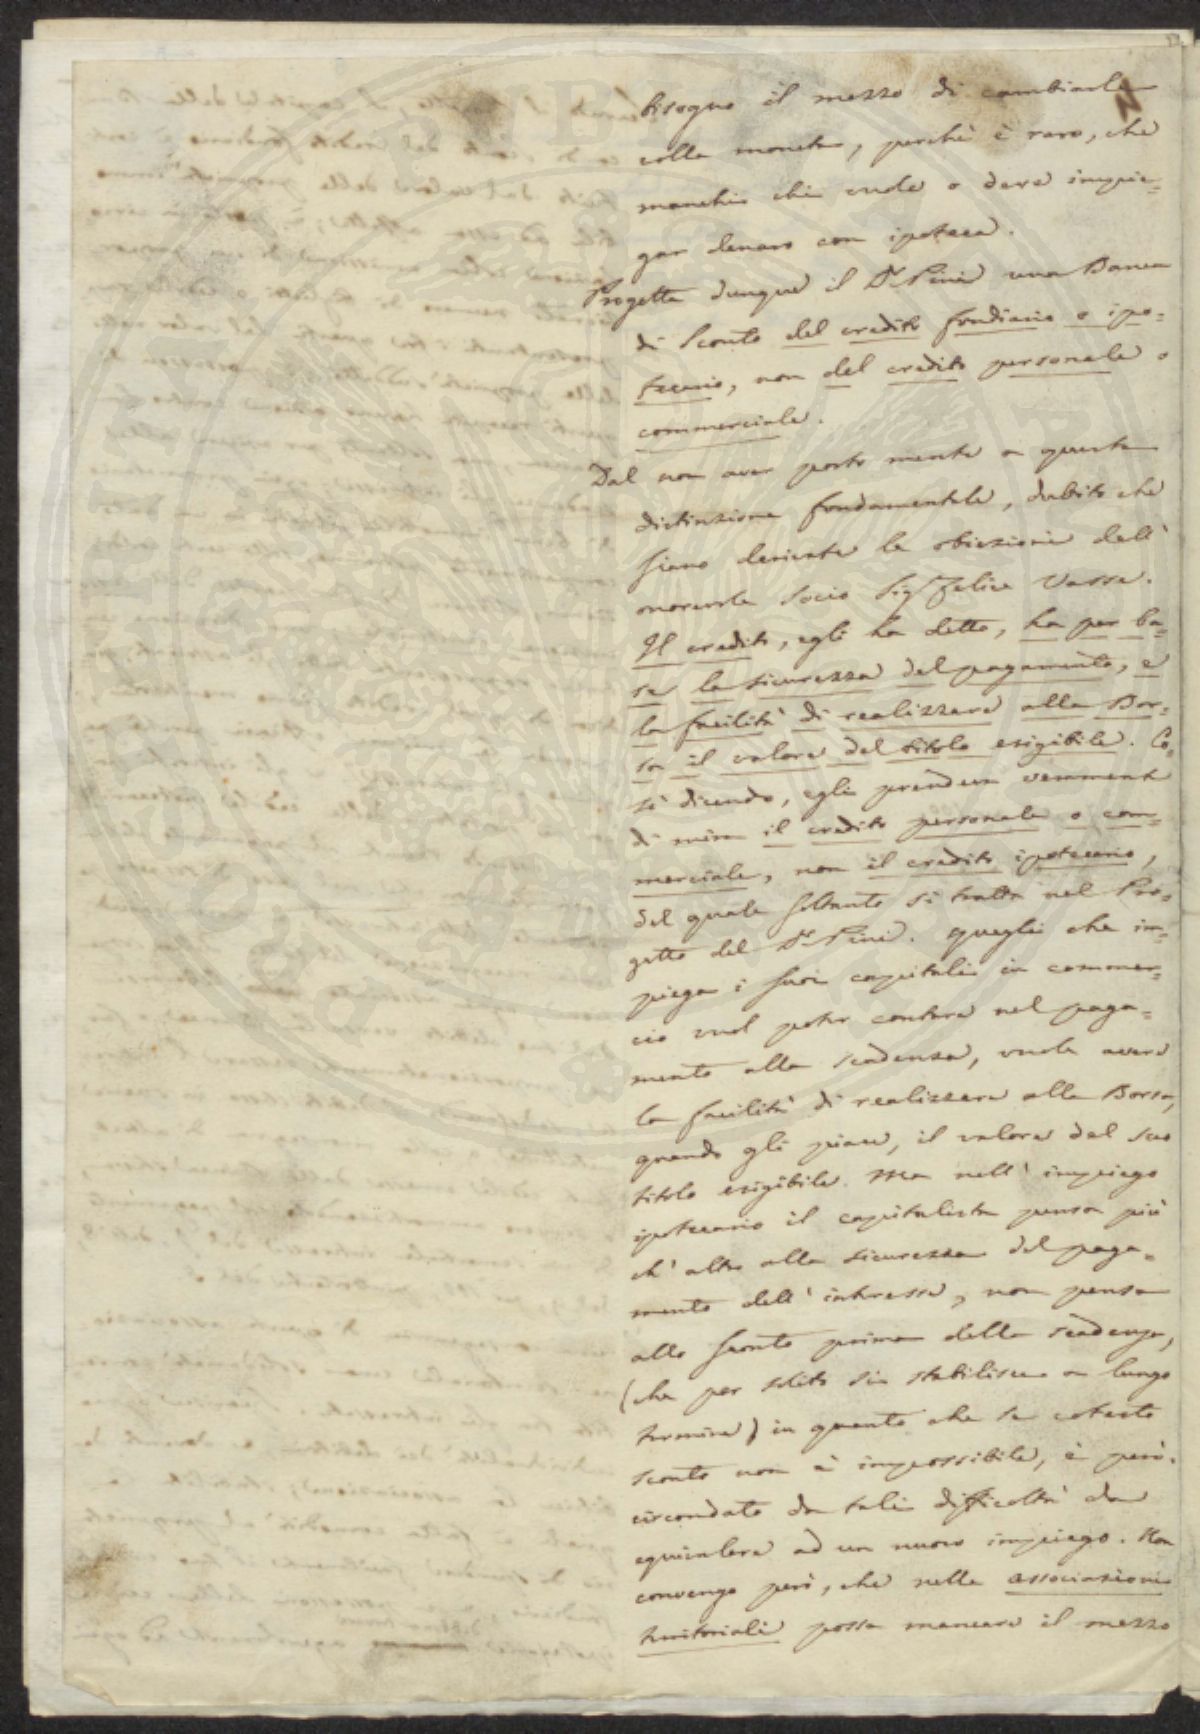 bisogno il mezzo di cambiarle
colla moneta, perchè è raro, che
manchi chi vuole o deve impie=
gar denaro con ipoteca.
Progetta dunque il Dr. Pini una Banca
di Sconto del credito fondiario o ipo=
tecario, non del credito personale o
commerciale.
Dal non aver posto mente a questa
distinzione fondamentale, dubito che
siano derivate le obiezioni dell'
onorevole Socio Sigr Felice Vasse.
Il credito, egli ha detto, ha per ba=
se la sicurezza del pagamento, e
la facilità di realizzare alla Bor=
sa il valore del titolo esigibile. Co=
sì dicendo, egli prendeva veramente
di mira il credito personale o com=
merciale, non il credito ipotecario,
del quale soltanto si tratta nel Pro=
getto del Dr. Pini. Quegli che im=
piega i suoi capitali in commer=
cio vuol poter contare nel paga=
mento alla scadenza, vuole avere
la facilità di realizzare alla Borsa,
quando gli piace, il valore del suo
titolo esigibile. Ma nell' impiego
ipotecario il capitalista pensa più
ch' altro alla sicurezza del paga=
mento dell' interesse, non pensa
allo sconto prima della scadenza,
(che per solito si stabilisce a lungo
termine) in quanto che se cotesto
sconto non è impossibile, è però
circondato da tali difficoltà da
equivalere ad un nuovo impiego. Non
convengo però, che nelle associazioni
territoriali possa mancare il mezzo